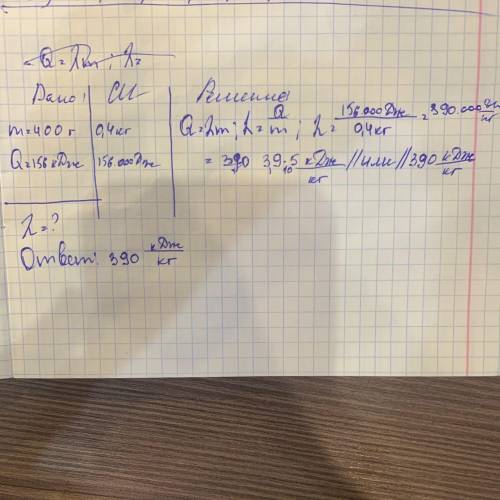 Q = λm ; λ =
Дано: СИ Решение
m = 400 г 0,4 кг Q = λm ; λ = Q/m ; λ = 156.000 Дж / 0,4 кг = 390.000 Дж/кг
Q = 156 кДж 156.000 Дж = 390 кДж/кг // или // 390 кДж/кг
λ = ?
Ответ: 390 кДж/кг